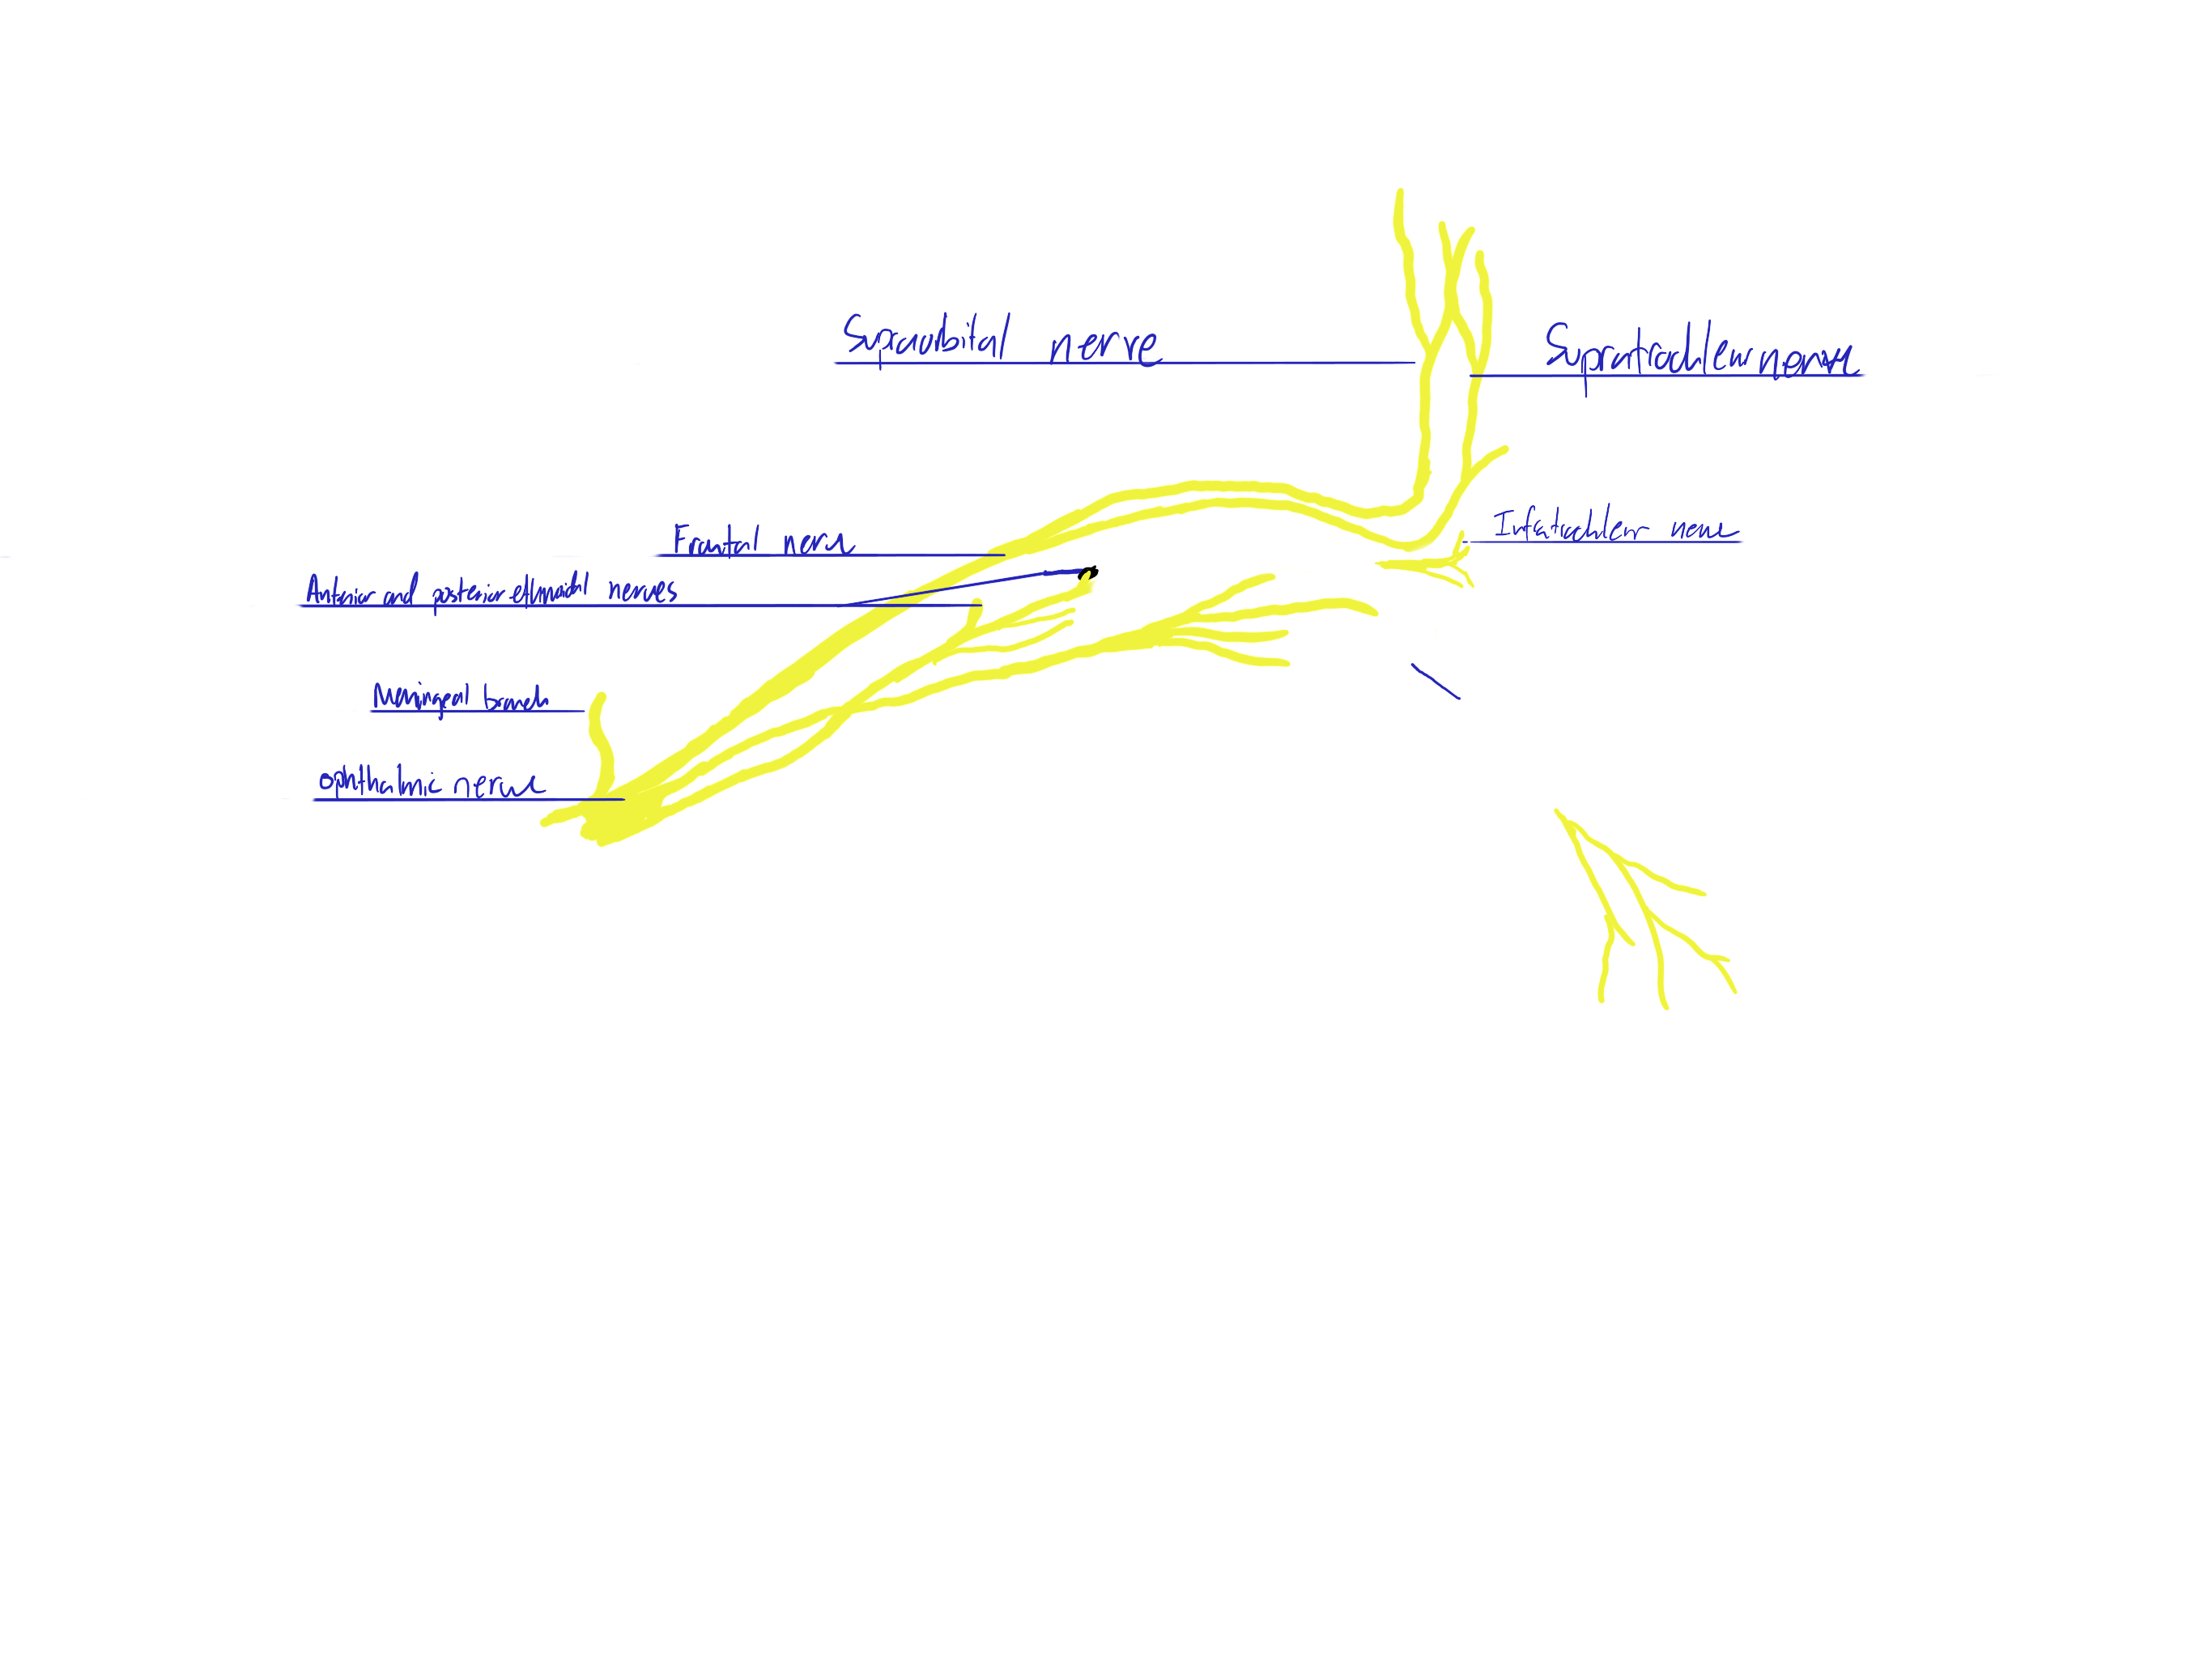 Supraorbital nerve
Supratrochlear nerve
Frontal nerve
Infratrochlear nerve
Anterior and posterior ethmoidal nerves
Meningeal branch
Ophthalmic nerve